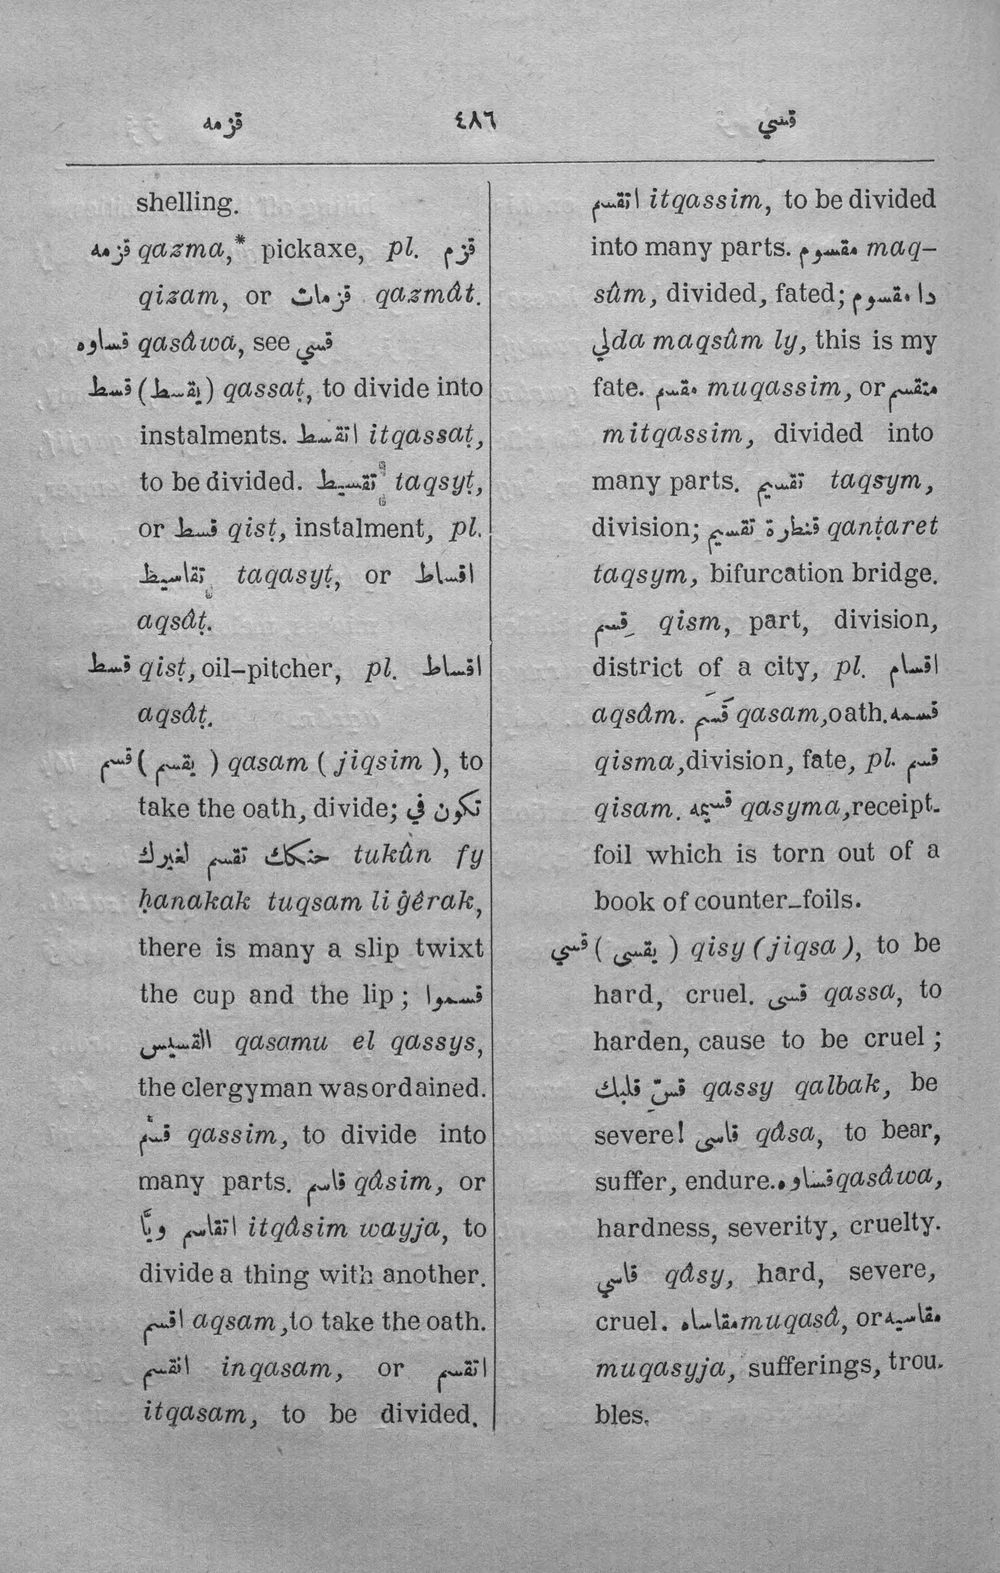 قزمه ٤٨٦ قسي
shelling.
قزمه qazma,* pickaxe, pl. قزم
qizam, or قزمات qazmât.
قساوه qasâwa, see قسي
قسط (يقسط) qassaṭ, to divide into
instalments. اتقسط itqassaṭ,
to be divided. تقسيط taqsyṭ,
or قسط qisṭ, instalment, pl.
تقاسيط taqasyṭ, or اقساط
aqsâṭ.
قسط qisṭ, oil-pitcher, pl. اقساط
aqsâṭ.
قسم ( يقسم ) qasam ( jiqsim ), to
take the oath, divide; تكون في
حنكك تقسم لغيرك tukûn fy
ḥanakak tuqsam li ġêrak,
there is many a slip twixt
the cup and the lip ; قسموا
القسيس qasamu el qassys,
the clergyman was ordained.
قسّم qassim, to divide into
many parts. قاسم qâsim, or
اتقاسم ويّا itqâsim wayja, to
divide a thing with another.
اقسم aqsam, to take the oath.
انقسم inqasam, or اتقسم
itqasam, to be divided.
اتقسم itqassim, to be divided
into many parts. مقسوم maq-
sûm, divided, fated; دا مقسوم
لي da maqsûm ly, this is my
fate. مقسم muqassim, or متقسم
mitqassim, divided into
many parts. تقسيم taqsym,
division; قنطرة تقسيم qanṭaret
taqsym, bifurcation bridge.
قِسم qism, part, division,
district of a city, pl. اقسام
aqsâm. قَسَم qasam, oath. قسمه
qisma, division, fate, pl. قسم
qisam. قسيمه qasyma, receipt.
foil which is torn out of a
book of counter-foils.
قسي ( يقسى ) qisy ( jiqsa ), to be
hard, cruel. قسى qassa, to
harden, cause to be cruel ;
قسِّ قلبك qassy qalbak, be
severe! قاسى qâsa, to bear,
suffer, endure. قساوه qasâwa,
hardness, severity, cruelty.
قاسي qâsy, hard, severe,
cruel. مقاساه muqasâ, or مقاسيه
muqasyja, sufferings, trou.
bles.